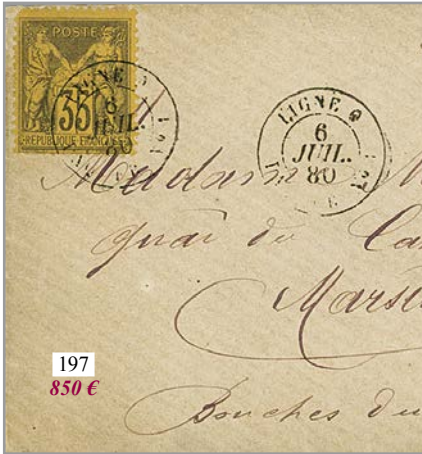 POSTE
35
REPUBLIQUE FRANÇAISE
LIGNE
6
JUIL.
80
LIGNE
6
JUIL.
80
Madame M
quai du Ca
Marse
Bouches du
197
850 €